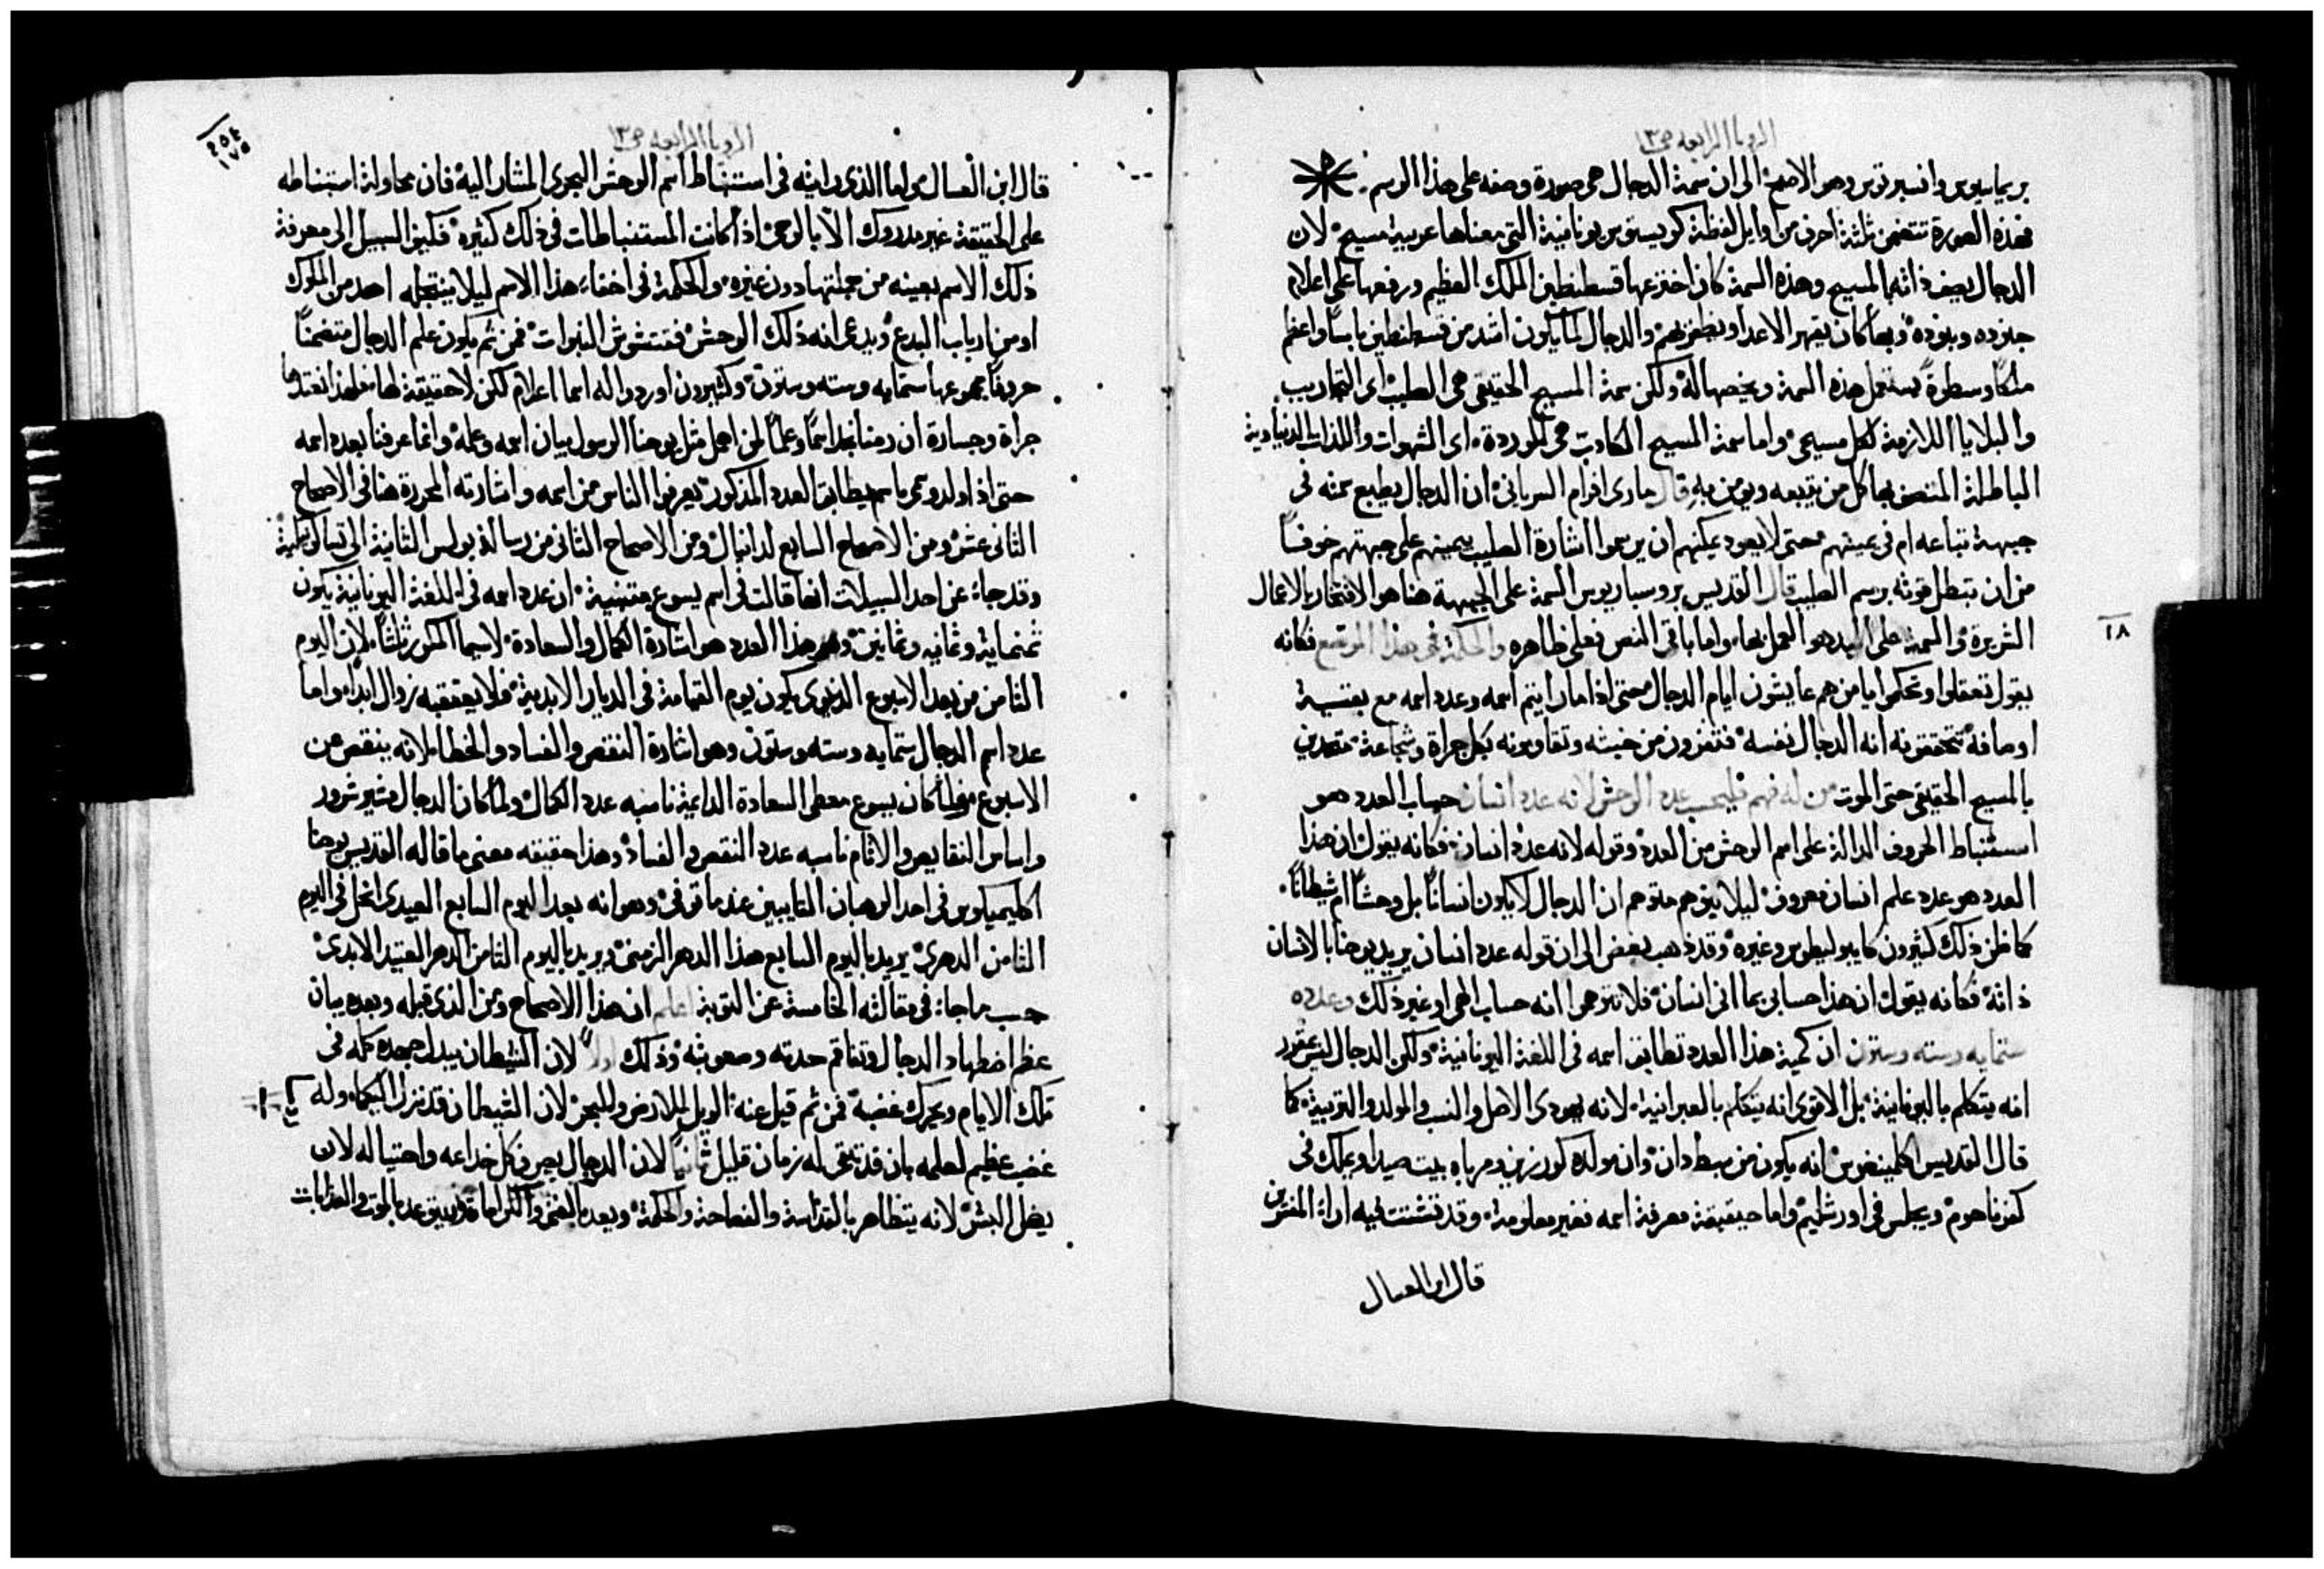 الرويا الرابعه ص١٣
بريماسيوس وانسبرتوس وهو الاصح الى ان سمة الدجال هى صورة وصفه على هذا الرسم
فهذه الصورة تتضمن ثلثة احرف من اوايل لفظة كريستوس يونانية التى معناها عربية مسيح لان
الدجال يصف ذاته المسيح وهذه السمة كان اخترعها قسطنطين الملك العظيم ورفعها على اعلام
جنوده وبنوده وبها كان يقهر الاعدا ويظفر بهم والدجال لما يكون اشد من قسطنطين باسا واعظم
ملكا وسطوة يستعمل هذه السمة ويخصها له ولكن سمة المسيح الحقيقى هى الصليب اى التجاريب
والبلايا اللازمة لكل مسيحى واما سمة المسيح الكادب هى الوردة اى الشهوات واللذات الدنياوية
الباطلة المتصف بها كل من يتبعه ويومن به قال مارى افرام السريانى ان الدجال يطبع سمته فى
جبهة تباعه ام فى يمينهم حتى لا يعود يمكنهم ان يرسموا اشارة الصليب بيمينهم على جبهتهم خوفا
من ان تبطل قوته برسم الصليب قال القديس بروسباريوس السمة على الجبهة هنا هو الافتخار بالاعمال
الشريرة والسمة على اليد هو العمل بها واما باقى النص فعلى ظاهره والحكمة فى هذا الموضع فكانه
١٨
يقول تعقلوا وتحكموا يا من هم عايشون ايام الدجال حتى اذا ما رايتم اسمه وعدد اسمه مع بقية
اوصافه تتحققونه انه الدجال نفسه فتفرون من خبثه وتقاومونه بكل جراة وشجاعة متحدين
بالمسيح الحقيقى حتى الموت من له فهم فليحسب عدد الوحش لانه عدد انسان حساب العدد هو
استنباط الحروف الدالة على اسم الوحش من العدد وقوله لانه عدد انسان فكانه يقول ان هذا
العدد هو عدد علم انسان معروف ليلا يتوهم متوهم ان الدجال لا يكون انسانا بل وحشا ام شيطانا
كما ظن ذلك كثيرون كايبوليطوس وغيره وقد ذهب بعض الى ان قوله عدد انسان يريد يوحنا بالانسان
ذاته فكانه يقول ان هذا حسابى بما انى انسان فلا تتوهموا انه حساب الهى او غير ذلك وعدده
ستمايه وسته وستون ان كمية هذا العدد تطابق اسمه فى اللغة اليونانية ولكن الدجال ليس
انه يتكلم باليونانية بل الاقوى انه يتكلم بالعبرانية لانه يهودى الاصل والنسب والمولد والتربية كما
قال القديس اكليمنضوس انه يكون من سبط دان وان مولده كورزين ومرباه بيت صيدا ويملك فى
كفرناحوم ويجلس فى اورشليم واما حقيقة معرفة اسمه فغير معلومة وقد تشتت فيه اراء المفسرين
قال ابن العسال
الرويا الرابعه ص١٣
٢٥٤
١٧٥
قال ابن العسال واما الذى رايته فى استنباط اسم الوحش البحرى المشار اليه فان محاولة استنباطه
على الحقيقة غير مدروك الا بالوحى اذ كانت المستنباطات فى ذلك كثيره فكيف السبيل الى معرفة
ذلك الاسم بعينه من جملتها دون غيره والحكمة فى اخفاء هذا الاسم ليلا ينتحله احد من الملوك
او من ارباب البدع ويدعى انه ذلك الوحش فتتشوش النبوات فمن ثم يكون علم الدجال متضمنا
حروفا مجموعها ستمايه وسته وستون وكثيرون اوردوا له اسما اعلام لكن لا حقيقة لها
جراة وجسارة ان رمنا نجد اسما وعلما لمن اهمل مثل يوحنا الرسول بيان اسمه وعلمه وانما عرفنا بعدد اسمه
حتى اذا ولد وتسمى باسم يطابق العدد المذكور يعرفوا الناس من اسمه واشارته المحررة هنا فى الاصحاح
الثانى عشر ومن الاصحاح السابع لدانيال ومن الاصحاح الثانى من رسالة بولس الثانية الى تسالونيكية
وقد جاء عن احد السبيلات انها قالت فى اسم يسوع متنبية ان عدد اسمه فى اللغة اليونانية يكون
ثمنماية وثمانيه وثمانين وهذا العدد هو اشارة الكمال والسعادة لاسيما المكرر ثلثا لان اليوم
الثامن من بعد الاسبوع الدنيوى يكون يوم القيامة فى الديار الابدية فلا يعتقبه زوال ابدا واما
عدد اسم الدجال ستمايه وسته وستون وهو اشارة النقص والفساد والخطا لانه ينقص من
الاسبوع فلما كان يسوع معطى السعادة الدايمة ناسبه عدد الكمال ولما كان الدجال مشير شرور
واساس النقايص والاثام ناسبه عدد النقص والفساد وهذا حقيقه معنى ما قاله القديس يوحنا
اكليميكوس فى احد الرهبان التايبين عندما توفى وهو انه بعد اليوم السابع العيدى انحل فى اليوم
الثامن الدهرى يريد باليوم السابع هذا الدهر الزمنى ويريد باليوم الثامن الدهر العتيد الابدى
حسب ما جاء فى مقالته الخامسة عن التوبة اعلم ان هذا الاصحاح ومن الذى قبله وبعده بيان
عظم اضطهاد الدجال وتفاقم حدته وصعوبته وذلك اولا لان الشيطان يبدل جهده كله فى
تلك الايام ويحرك غضبه فمن ثم قيل عنه الويل للارض وللبحر لان الشيطان قد نزل اليكما وله
غضب عظيم لعلمه بان قد تبقى له زمان قليل ثانيا لان الدجال يصرف كل خداعه واحتياله لان
يضل البشر لانه يتظاهر بالقداسة والفصاحة والحكمة ويعد بالغنى والكرامة ويتوعد بالموت والعذابات